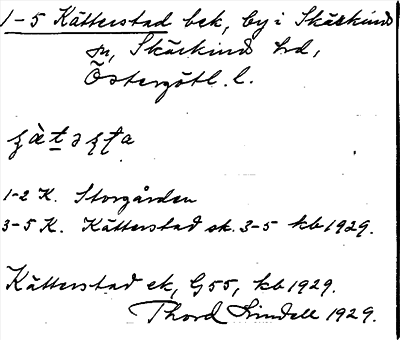 1-5 Kätterstad bek, by i Skärkind
sn, Skärkind hrd,
Östergötl. l.
1-2 K. Storgården
3-5 K. Kätterstad sk. 3-5 kb 1929.
Kätterstad ek, G55, kb 1929.
Thord Lindell 1929.